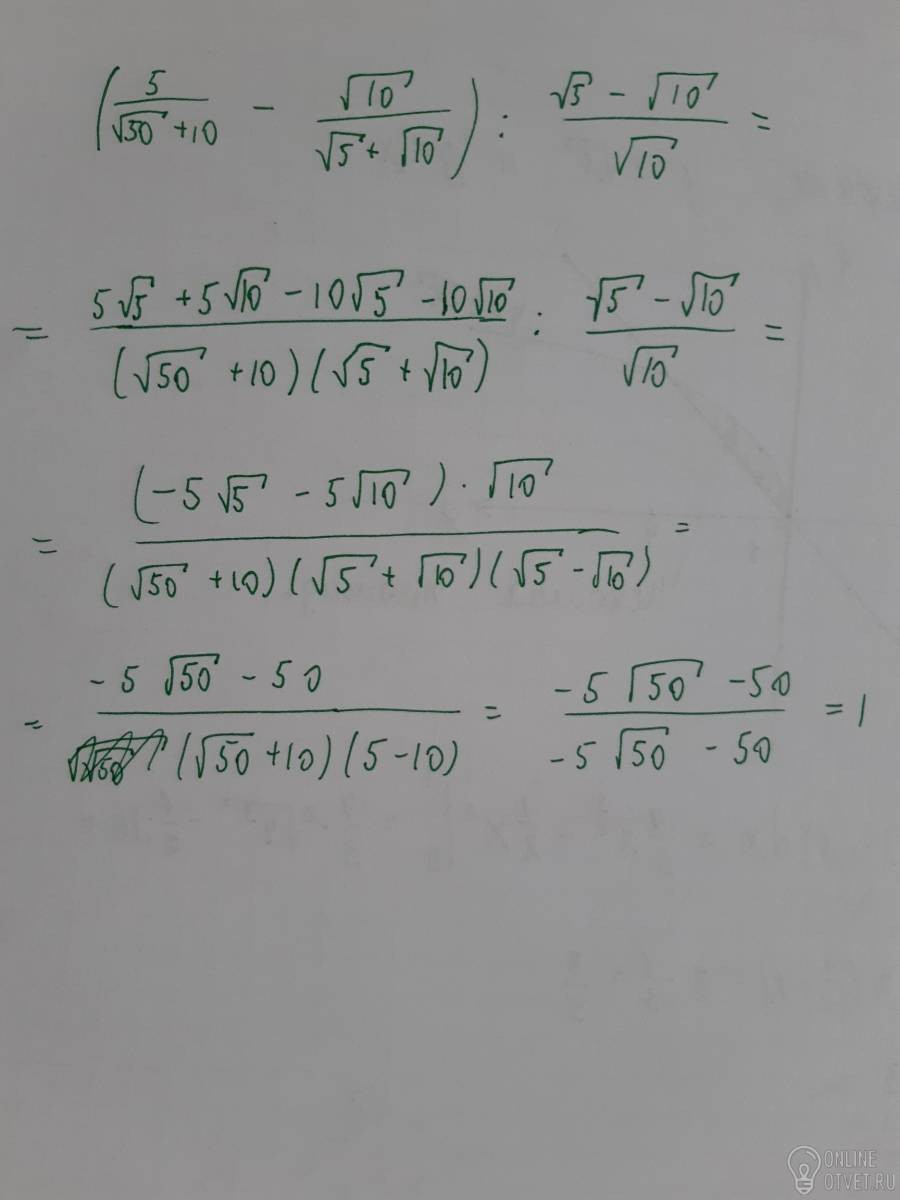 (5/(√50 + 10) − √10/(√5 + √10)) : (√5 − √10)/√10 =
= (5√5 + 5√10 − 10√5 − 10√10)/((√50 + 10)(√5 + √10)) : (√5 − √10)/√10 =
= ((−5√5 − 5√10) · √10)/((√50 + 10)(√5 + √10)(√5 − √10)) =
= (−5√50 − 50)/((√50 + 10)(5 − 10)) = (−5√50 − 50)/(−5√50 − 50) = 1
ONLINE
OTVET.RU